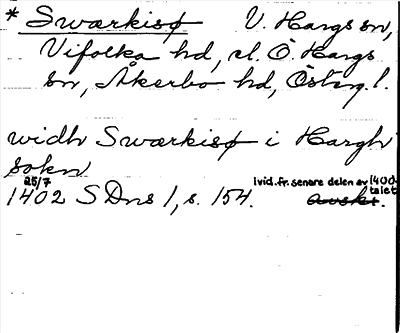 * Swærkisø V. Hargs sn,
Vifolka hd, el. Ö. Hargs
sn, Åkerbo hd, Östergl.
widh Swærkisø i Hargh
sokn
25/7 1402 SDns 1, s. 154. avskr.
(vid. fr. senare delen av 1400-
talet